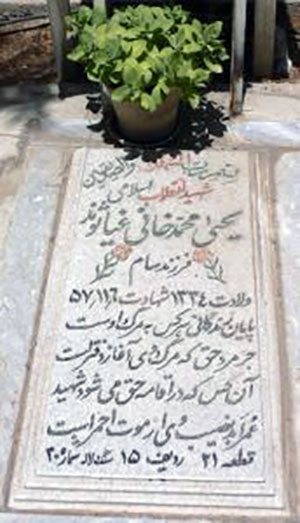 شهید انقلاب اسلامی
یحیی محمدخانی غیاثوند
فرزند سام
ولادت ۱۳۳۴ شهادت ۵۷/۱۱/۶
پایان زندگانی هر کس به مرگ اوست
جز مرد حق که مرگ وی آغاز دفتر است
آن کس که در اقامه حق می شود شهید
عمر ابد نصیب وی از موت احمر است
قطعه ۲۱ ردیف ۱۵ سنگلار شماره ۲۰